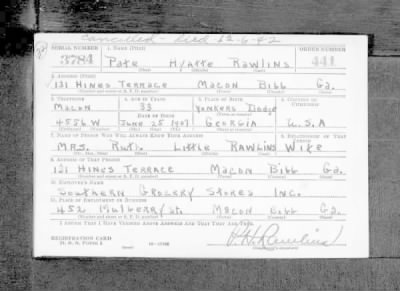 Cancelled - Died 12-6-42
SERIAL NUMBER 1. NAME (Print) ORDER NUMBER
3784 Pate Hyatte Rawlins 441
(First) (Middle) (Last)
2. ADDRESS (Print)
131 Hines Terrace Macon Bibb Ga.
(Number and street or R. F. D. number) (Town) (County) (State)
3. TELEPHONE 4. AGE IN YEARS 5. PLACE OF BIRTH 6. COUNTRY OF CITIZENSHIP
Macon 33 Yonkers Dodge
DATE OF BIRTH
4556W June 25 1907 Georgia U.S.A
7. NAME OF PERSON WHO WILL ALWAYS KNOW YOUR ADDRESS 8. RELATIONSHIP OF THAT PERSON
Mrs. Ruth Little Rawlins Wife
(Mr., Mrs., Miss) (First) (Middle) (Last)
9. ADDRESS OF THAT PERSON
131 Hines Terrace Macon Bibb Ga.
(Number and street or R. F. D. number) (Town) (County) (State)
10. EMPLOYER'S NAME
Southern Grocery Stores Inc.
11. PLACE OF EMPLOYMENT OR BUSINESS
452 Mulberry St. Macon Bibb Ga.
(Number and street or R. F. D. number) (Town) (County) (State)
I AFFIRM THAT I HAVE VERIFIED ABOVE ANSWERS AND THAT THEY ARE TRUE.
REGISTRATION CARD
D. S. S. Form 1 16-17105
P.H. Rawlins
(Registrant's signature)